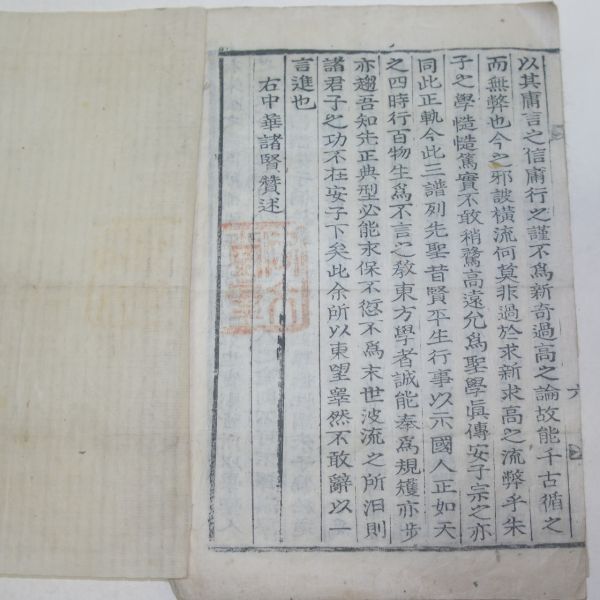 以其庸言之信庸行之謹不爲新奇過高之論故能千古循之
而無弊也今之邪詖橫流何莫非過於求新求高之流弊乎朱
子之學慥慥篤實不敢稍騖高遠允爲聖學眞傳安子宗之亦
同此正軌今此三譜列先聖昔賢平生行事以示國人正如天
之四時行百物生爲不言之敎東方學者誠能奉爲規矱亦步
亦趨吾知先正典型必能永保不愆不爲末世波流之所汨則
諸君子之功不在安子下矣此余所以東望睪然不敢辭以一
言進也
右中華諸賢贊述
六